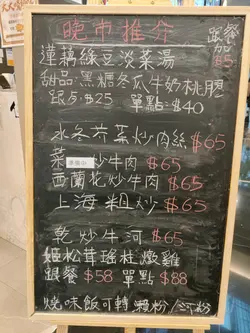 晚市推介
跟餐
加
$5
蓮藕綠豆淡菜湯
甜品:黑糖冬瓜牛奶桃膠
跟反:$25 單點:$40
水冬芥菜炒肉絲 $65
菜 炒牛肉 $65
西蘭花炒牛肉 $65
上海粗炒 $65
乾炒牛河 $65
姬松茸瑤柱燉雞
跟餐 $58 單點 $88
燒味飯可轉 瀨粉/河粉